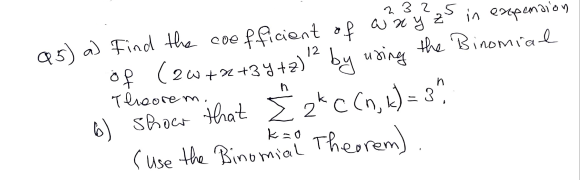 Q5) a) Find the coefficient of w² x³ y² z⁵ in expension
of (2w+x+3y+z)¹² by using the Binomial
Theorem.
b) Show that ∑_{k=0}^{n} 2ᵏ C(n,k) = 3ⁿ.
(use the Binomial Theorem).